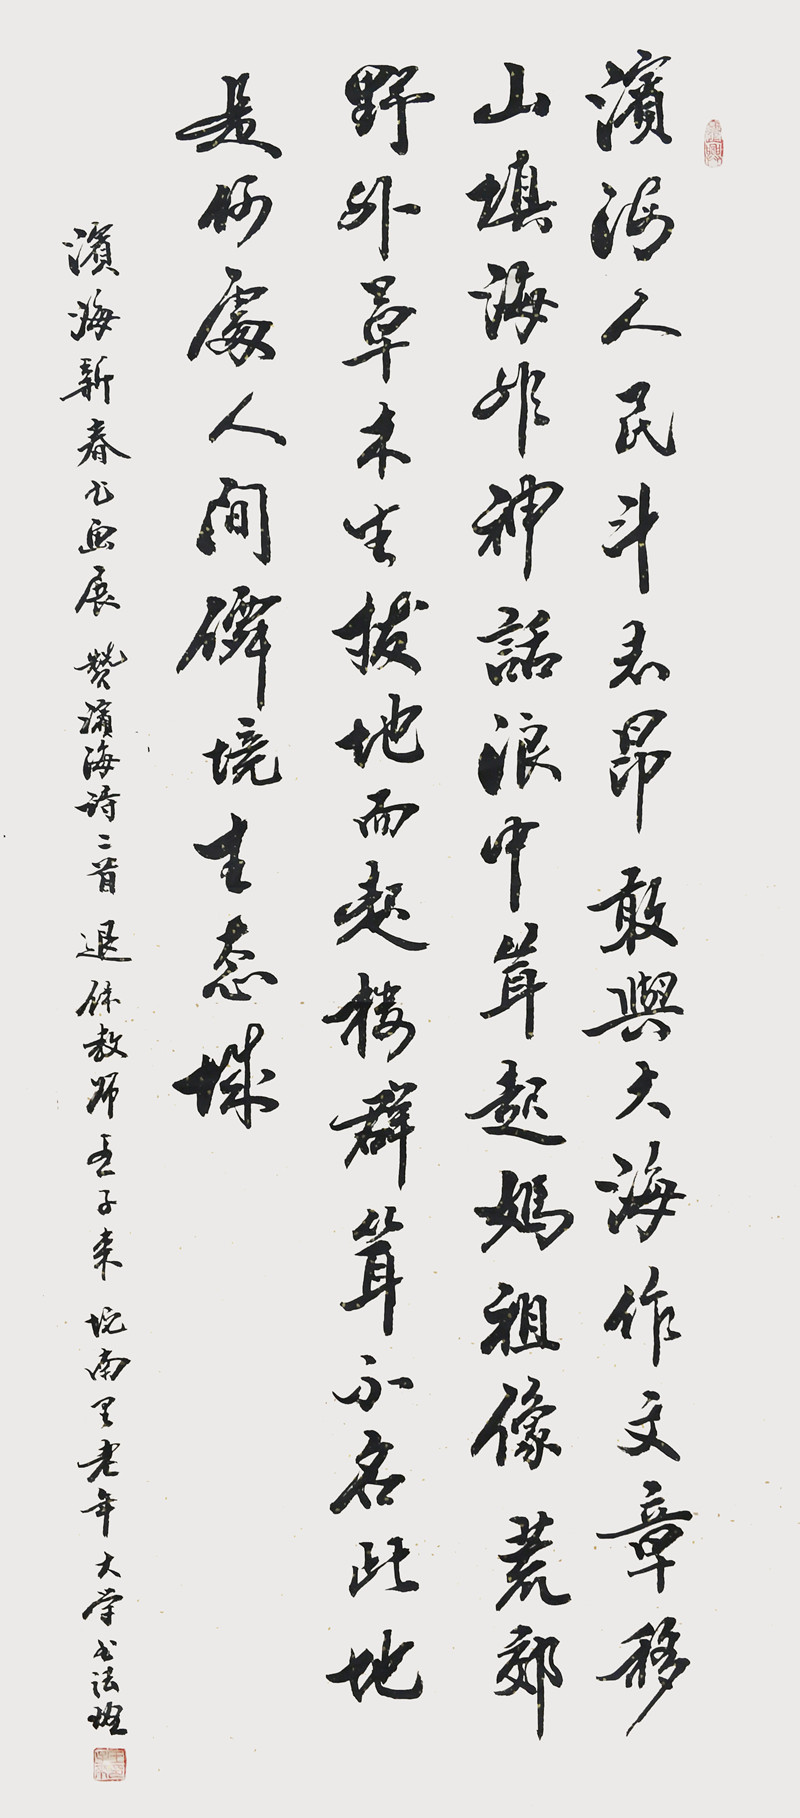 濱海人民斗志昂敢與大海作文章移
山填海非神話浪中耸起媽祖像荒郊
野外草木生拔地而起楼群耸不名此地
是何處人間境生态城
濱海新春书画展 赞濱海诗二首 退休教师子来 坨南里老年大学书法班